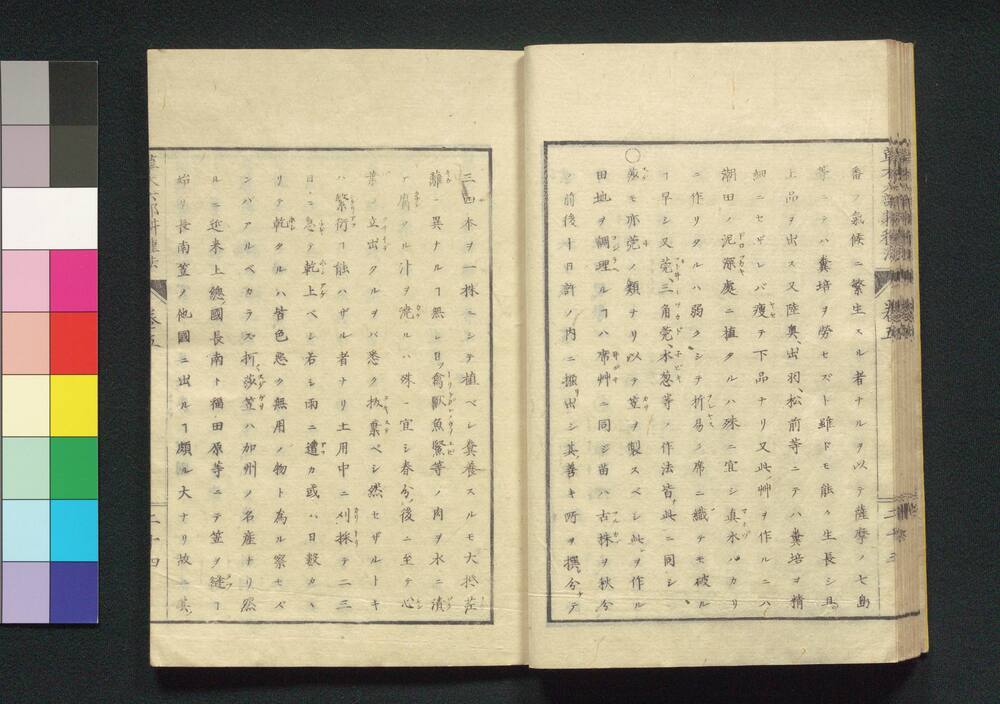 番ノ氣候ニ繁生スル者ナルヲ以テ薩摩ノ七島
等ニテハ糞培ヲ勞セズト雖ドモ能ク生長シ且
上品ヲ出ス又陸奥、出羽、松前等ニテハ糞培ヲ精
細ニセザレバ瘦テ下品ナリ又此艸ヲ作ルニハ
潮田ノ泥深處ニ植タルハ殊ニ宜シ真水バカリ
ニ作リタルハ弱クシテ折易ノ席ニ織テモ破ル
ヿ早シ又莞三角莞、水葱等ノ作法皆此ニ同シ、
○莎モ亦莞ノ類ナリ以テ笠ヲ製スベシ此ヲ作ル
田地ヲ調理ルヿハ席艸ニ同シ苗ハ古株ヲ秋分
ノ前後十日許ノ内ニ掘出シ其善キ所ヲ撰分テ
三四本ヲ一株ニシテ植ベシ糞養スルモ大抵茳
蘺ニ異ナルヿ無シ日ク禽獸魚蝦等ノ肉ヲ水ニ漬
テ腐タル汁ヲ澆ルハ殊ニ宜シ春分後ニ至テ心
葉ノ立出タルヲバ悉ク拔棄ベシ然セザルトキ
ハ繁衍ヿ能ハザル者ナリ土用中ニ刈採テ二三
日ニ急テ乾上ベシ若シ雨ニ遭カ或ハ日數カヽ
リテ乾タルハ皆色惡ク無用ノ物ト為ル察セズ
ンバアルベカラズ折、莎笠ハ加州ノ名産ナリ然
ルニ近来上總國長南ト福田原等ニテ笠ヲ縫ヿ
始リ長南笠ノ他國ニ出ルヿ頗ル大ナリ故ニ其
卷五
二十三
卷五
二十四